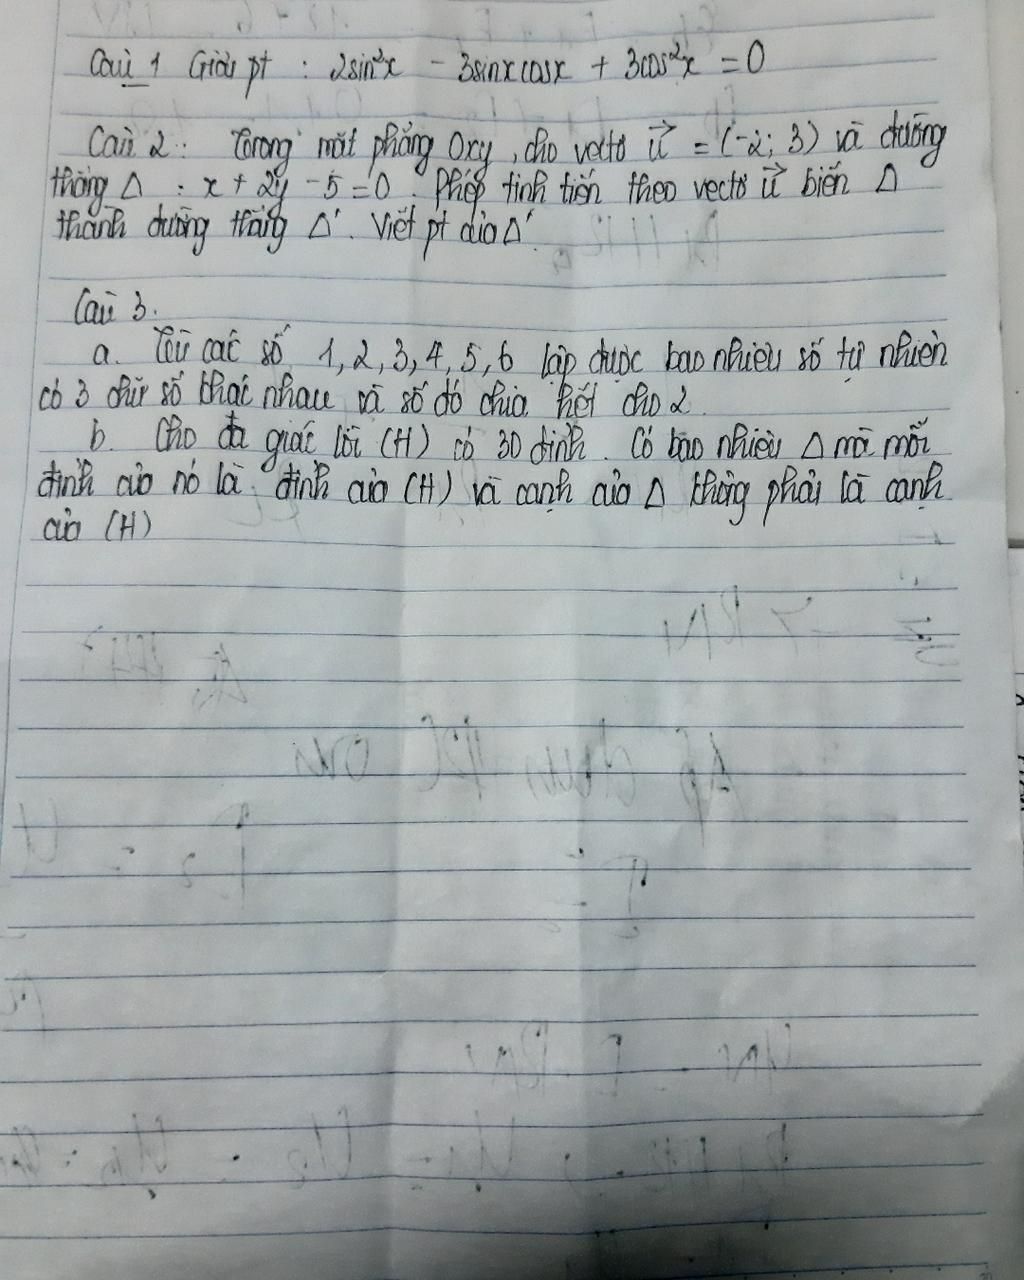 Câu 1 Giải pt : 2sin²x - 3sinxcosx + 3cos²x = 0
Câu 2 : Trong mặt phẳng Oxy, cho vectơ u⃗ = (-2; 3) và đường
thẳng Δ : x + 2y - 5 = 0. Phép tịnh tiến theo vectơ u⃗ biến Δ
thành đường thẳng Δ'. Viết pt của Δ'.
Câu 3.
a. Từ các số 1, 2, 3, 4, 5, 6 lập được bao nhiêu số tự nhiên
có 3 chữ số khác nhau và số đó chia hết cho 2.
b. Cho đa giác lồi (H) có 30 đỉnh. Có bao nhiêu Δ mà mỗi
đỉnh của nó là đỉnh của (H) và cạnh của Δ không phải là cạnh
của (H)